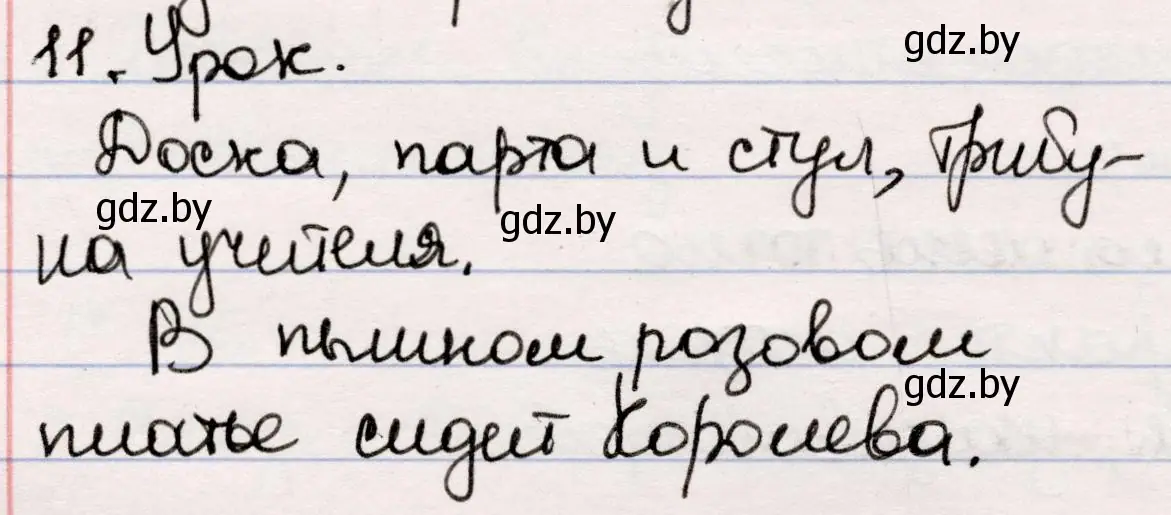 11. Урок.
gdz.by
Доска, парта и стул, трибу-
gdz.by
gdz.by
на учителя.
В пышном розовом
gdz.by
платье сидит Королева.